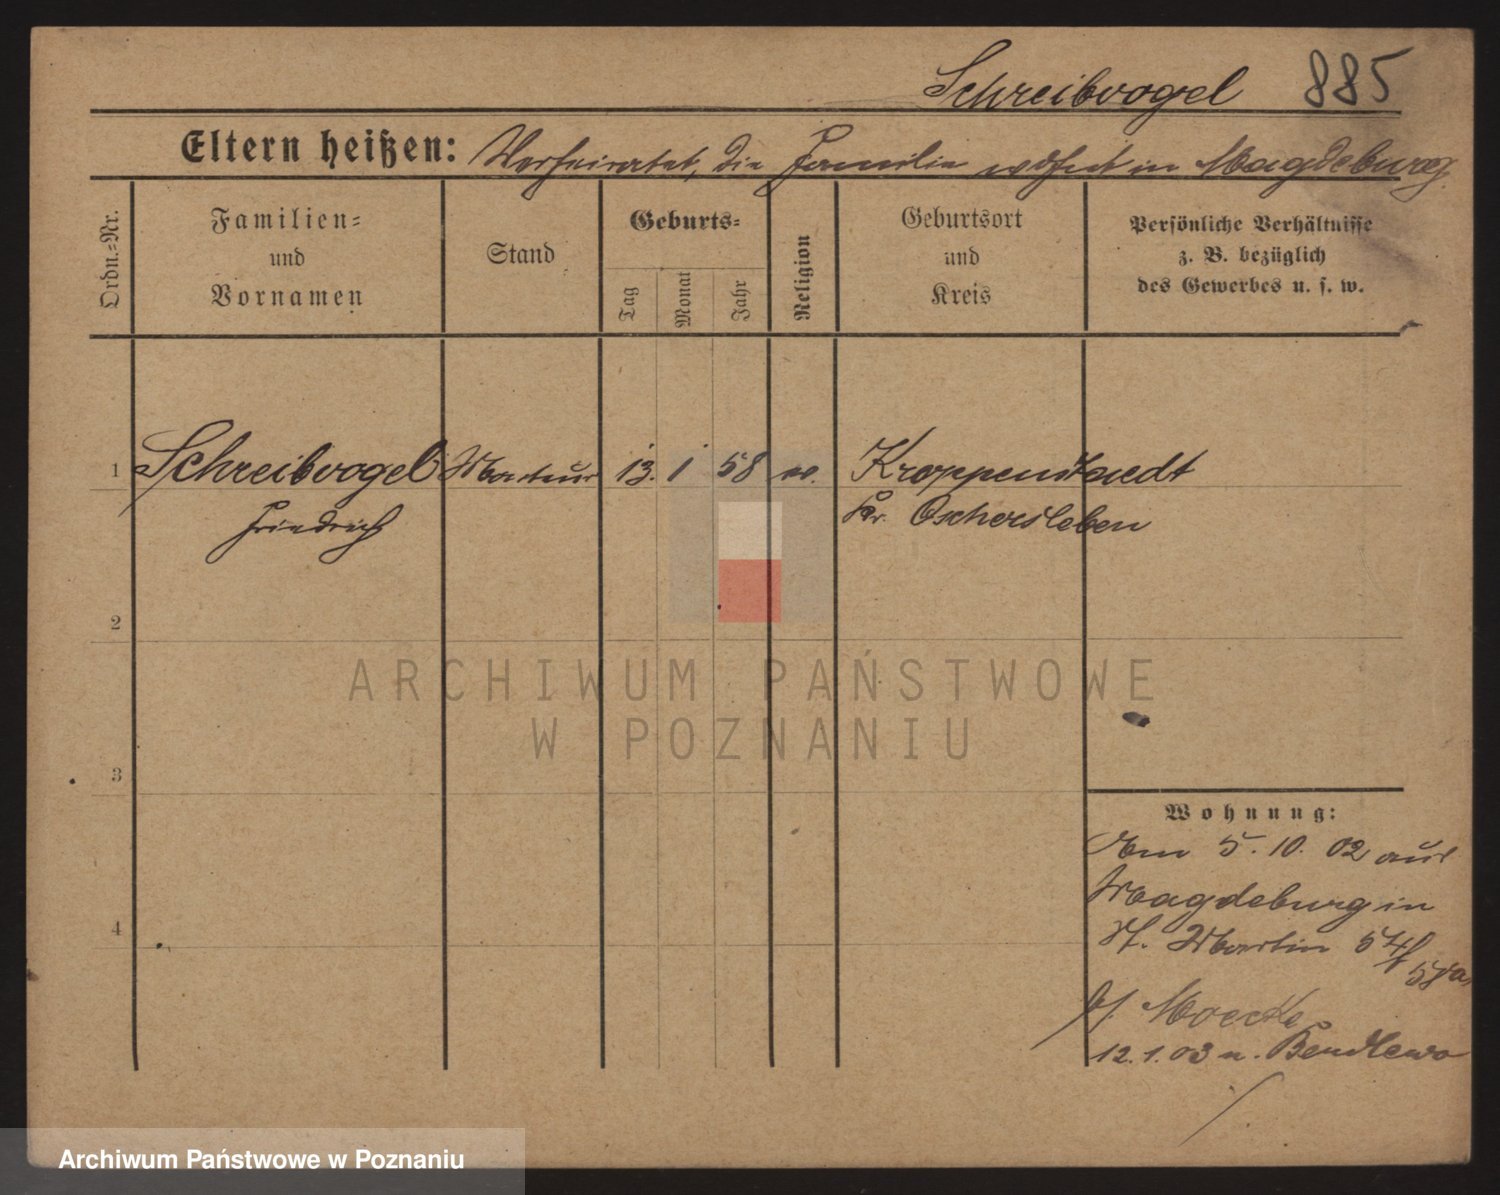 Schreibvogel 885
Eltern heißen: Verheiratet, die Familie wohnt in Magdeburg
Ordn.=Nr.
Familien=
und
Vornamen
Stand
Geburts=
Tag
Monat
Jahr
Religion
Geburtsort
und
Kreis
Persönliche Verhältnisse
z. B. bezüglich
des Gewerbes u. s. w.
1 Schreibvogel Monteur 13. 1 58 ev. Kroppenstaedt
Friedrich Kr. Oschersleben
2
ARCHIWUM PAŃSTWOWE
W POZNANIU
3
Wohnung:
Am 5. 10. 02 aus
Magdeburg in
4
St. Martin 54/
58a
b/. Moecke
12.1.03 n. Bendlewo
Archiwum Państwowe w Poznaniu